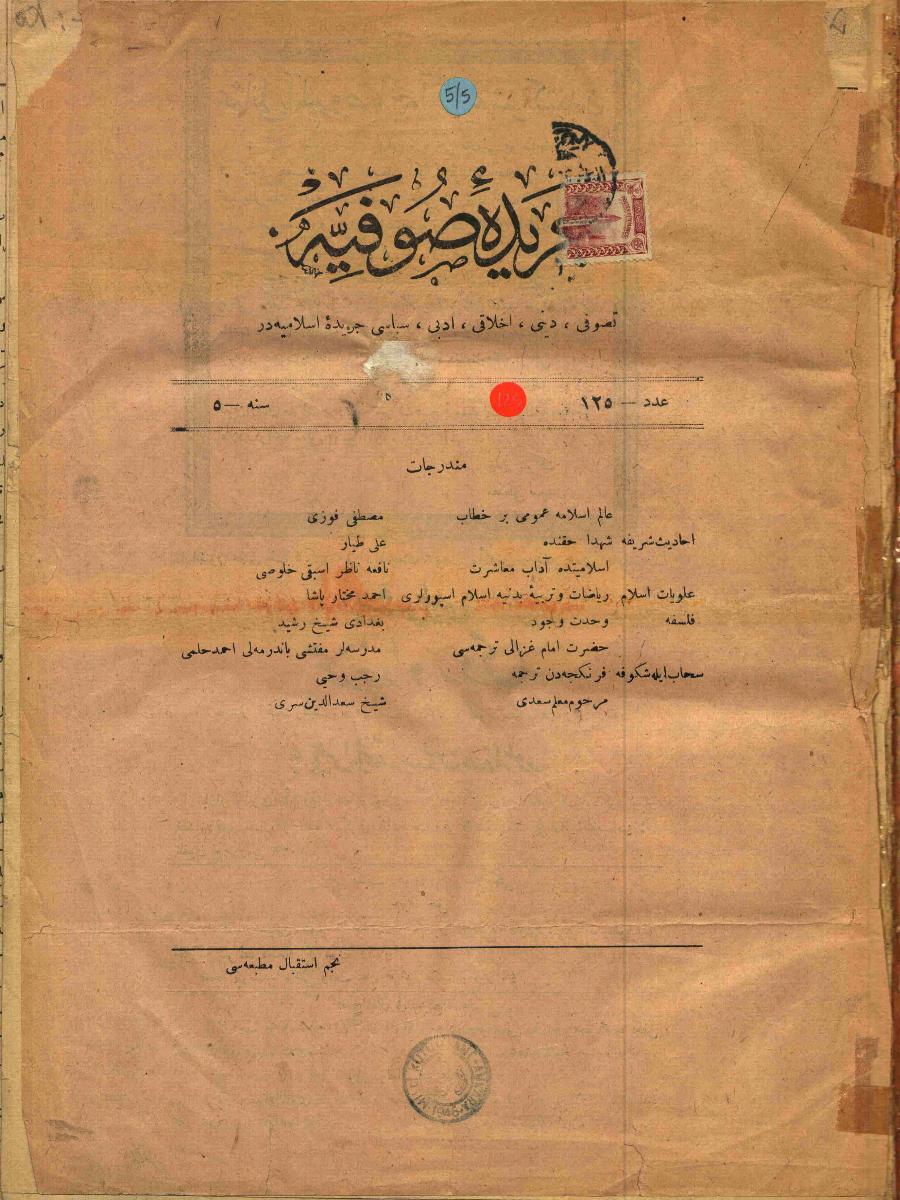 5/5
جريدهٔ صوفيه
تصوفى ، دينى ، اخلاقى ، ادبى ، سياسى جريدهٔ اسلاميه‌در
عدد — ١٢٥ سنه — ٥
مندرجات
عالم اسلامه عمومى بر خطاب مصطفى فوزى
احاديث‌شريفه شهدا حقنده على طيار
اسلاميتده آداب معاشرت نافعه ناظر اسبقى خلوصى
علويات اسلام رياضات وتربيهٔ بدنيه اسلام اسپورلرى احمد مختار پاشا
فلسفه وحدت وجود بغدادى شيخ رشيد
حضرت امام غزالى ترجمه‌سى مدرسه‌لر مفتشى باندرمه‌لى احمدحلمى
سحاب‌ايله‌شكوفه فرنكجه‌دن ترجمه رجب وحيى
مرحوم‌معلم‌سعدى شيخ سعدالدين‌سرى
نجم استقبال مطبعه‌سى